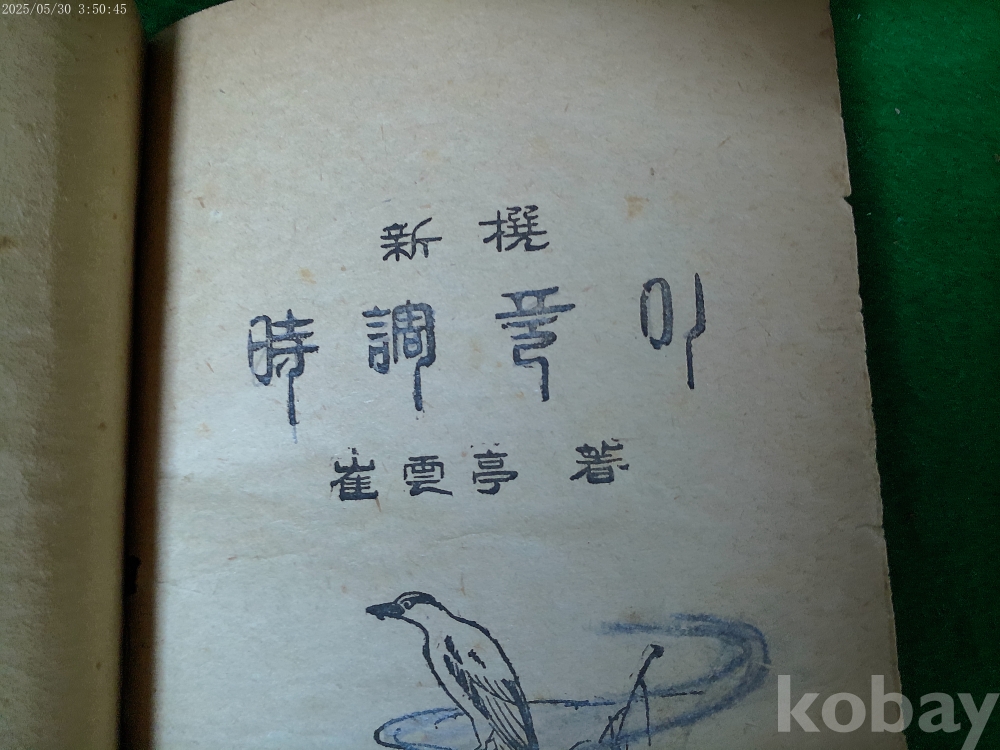 2025/05/30 3:50:45
新撰
時調풀이
崔雲亭 著
kobay